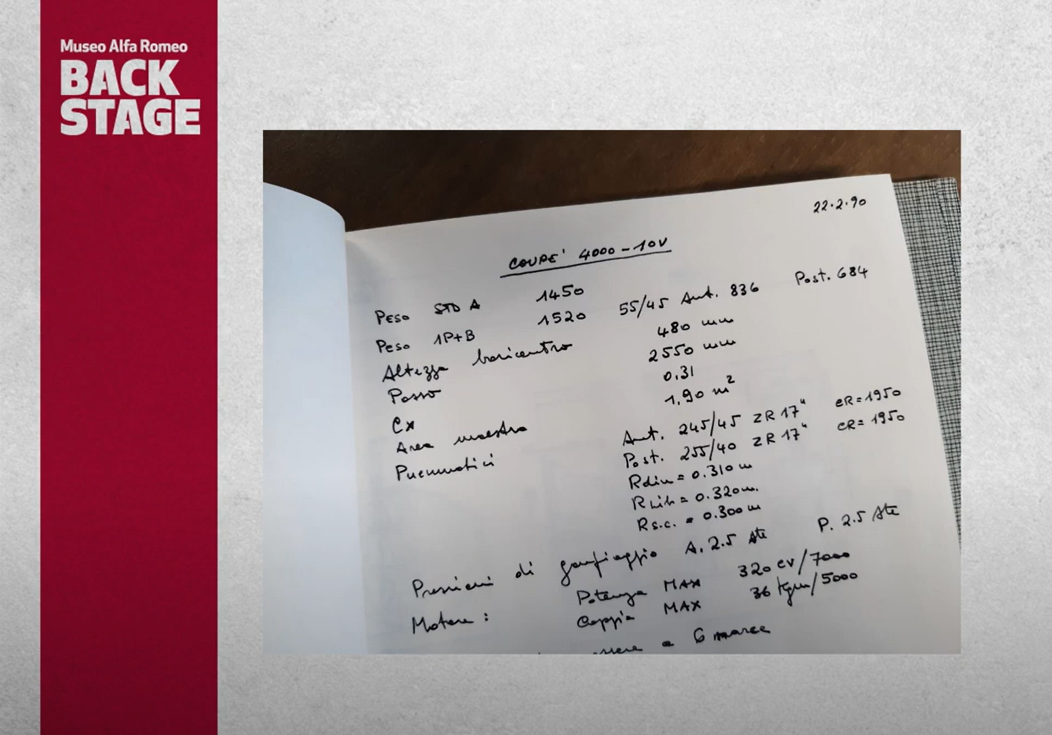 Museo Alfa Romeo
BACK
STAGE
22.2.90
COUPE' 4000-10V
Peso STD A 1450
Peso 1P+B 1520 55/45 Ant. 836 Post. 684
Altezza baricentro 480 mm
Passo 2550 mm
Cx 0,31
Area maestra 1,90 m²
Pneumatici Ant. 245/45 ZR 17" CR=1950
Post. 255/40 ZR 17" CR=1950
Rdin = 0.310 m
Rlib = 0.320m.
Rs.c. = 0.300 m
Pressioni di gonfiaggio A. 2.5 Ate P. 2.5 Ate
Motore: Potenza MAX 320 cv/7000
Coppia MAX 36 Kgm/5000
a 6 marce